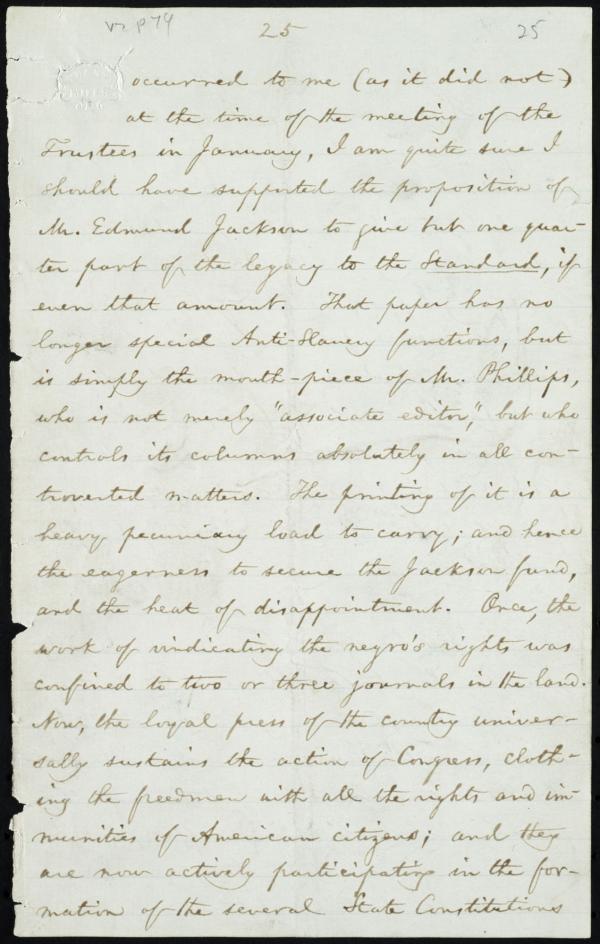 v2 p 74
25
25
occurred to me (as it did not)
at the time of the meeting of the
Trustees in January, I am quite sure I
should have supported the proposition of
Mr. Edmund Jackson to give but one quar-
ter part of the legacy to the Standard, if
even that amount. That paper has no
longer special Anti-Slavery functions, but
is simply the mouth-piece of Mr. Phillips,
who is not merely "associate editor," but who
controls its columns absolutely in all con-
troverted matters. The printing of it is a
heavy pecuniary load to carry; and hence
the eagerness to secure the Jackson fund,
and the heat of disappointment. Once, the
work of vindicating the negro's rights was
confined to two or three journals in the land.
Now, the loyal press of the country univer-
sally sustains the action of Congress, cloth-
ing the freedmen with all the rights and im-
munities of American citizens; and they
are now actively participating in the for-
mation of the several State Constitutions